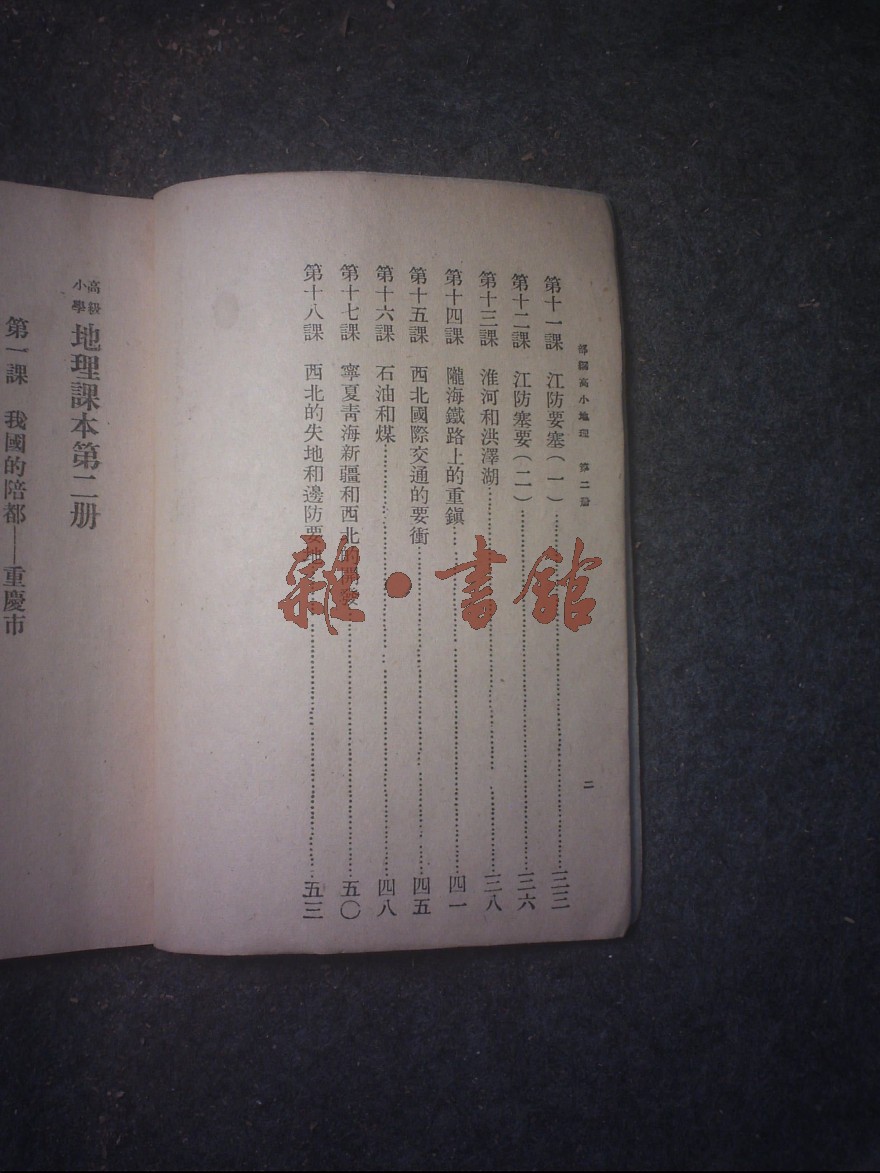 部編高小地理 第二册
二
第十一課 江防要塞(一)……三三
第十二課 江防塞要(二)……三六
第十三課 淮河和洪澤湖……三八
第十四課 隴海鐵路上的重鎮……四一
第十五課 西北國際交通的要衝……四五
第十六課 石油和煤……四八
第十七課 寧夏青海新疆和西北的……五〇
第十八課 西北的失地和邊防要地……五三
高級小學 地理課本第二册
第一課 我國的陪都——重慶市
雜·書館